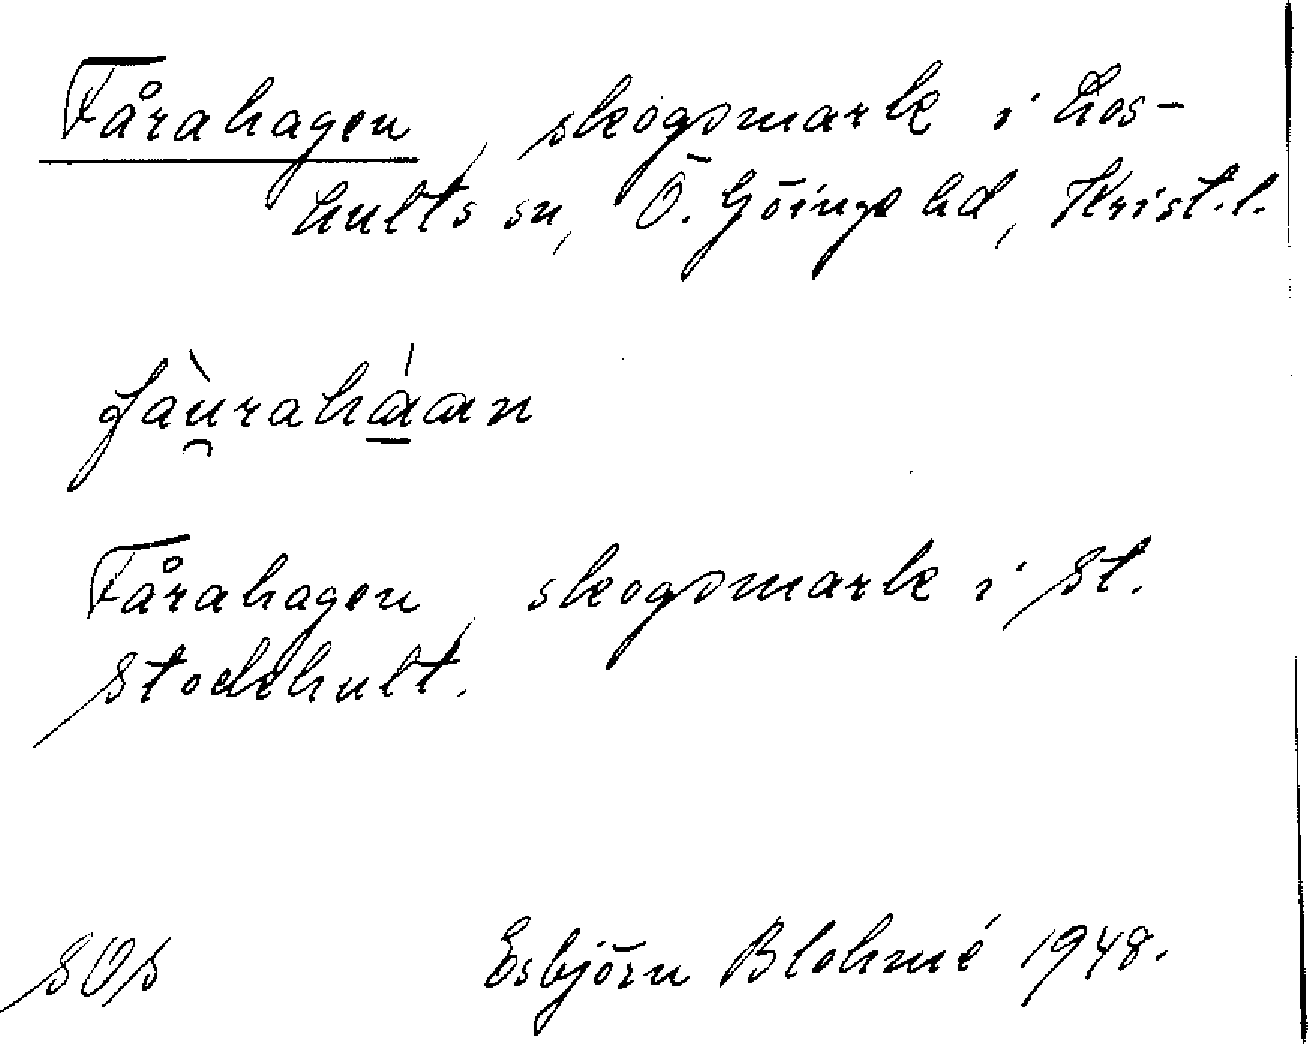 Fårahagen, skogsmark i Los-
hults sn, Ö. Göinge hd, Krist. l.
fàu̯rahá̱an
Fårahagen, skogsmark i St.
Stockhult.
SOs Esbjörn Blohmé 1948.